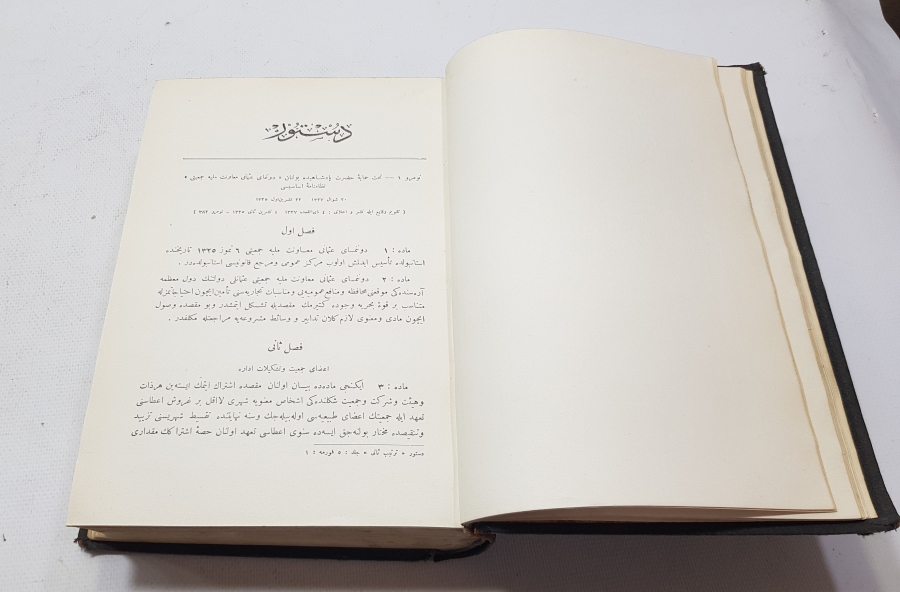 دستور
نومرو ١ — تحت حمایهٔ حضرت پادشاهیده بولنان « دونمای عثمانی معاونت ملیه جمعیتی »
نظامنامهٔ اساسیسی
٢٠ شوال ١٣٢٧ ٢٢ تشرین اول ١٣٢٥
فصل اول
ماده : ١ دوننمای عثمانی معاونت ملیه جمعیتی ٦ تموز ١٣٢٥ تاریخنده
استانبولده تأسیس ایدلمش اولوب مرکز عمومی ومرجع قانونیسی استانبولده‌در .
ماده : ٢ دوننمای عثمانی معاونت ملیه جمعیتی عثمانلی دولتنك دول معظمه
آره‌سنده‌کی موقعنی محافظه و منافع عمومیه‌نی و مناسبات تجاریه‌سنی تأمین ایچون احتیاجاتمزله
متناسب بر قوهٔ بحریه وجوده کتیرمك مقصدیله تشکل ایتمشدر وبو مقصده وصول
ایچون مادی ومعنوی لازم کلان تدابیر و وسائط مشروعه‌یه مراجعتله مکلفدر .
فصل ثانی
اعضای جمعیت وتشکیلات اداره
ماده : ٣ ایکنجی ماده‌ده بیان اولنان مقصده اشتراك ایتمك ایسته‌ین هرذات
وهیئت وشرکت وجمعیت شکلنده‌کی اشخاص معنویه شهری لااقل بر غروش اعطاسنی
تعهد ایله جمعیتك اعضای طبیعیه‌سی اوله‌بیله‌جك وسنه نهایتنده تقسیط شهریسنی تزیید
وتنقیصده مختار بولنه‌جق ایسه‌ده سنوی اعطاسی تعهد اولنان حصهٔ اشتراكك مقداری
دستور « ترتیب ثانی » جلد : ٥ فورمه : ١